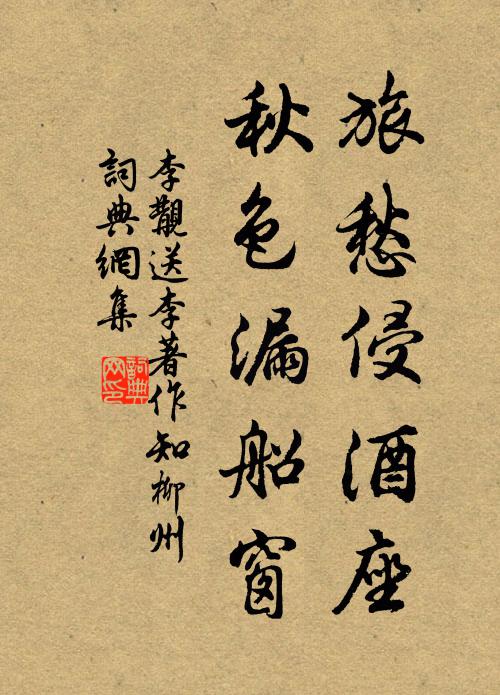 旅愁侵酒座
秋色漏船窗
李覯送李著作知柳州
詞典網集
詞典网印